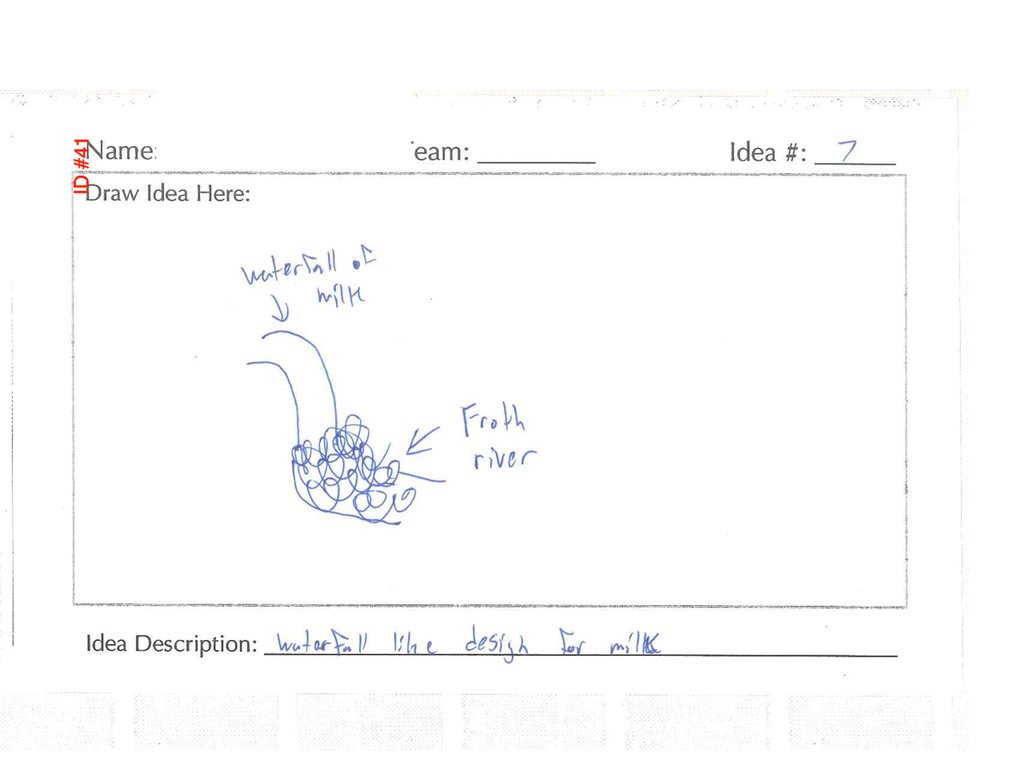 ID #41
Name:
eam:
Idea #: 7
Draw Idea Here:
waterfall of
milk
Froth
river
Idea Description: waterfall like design for milk